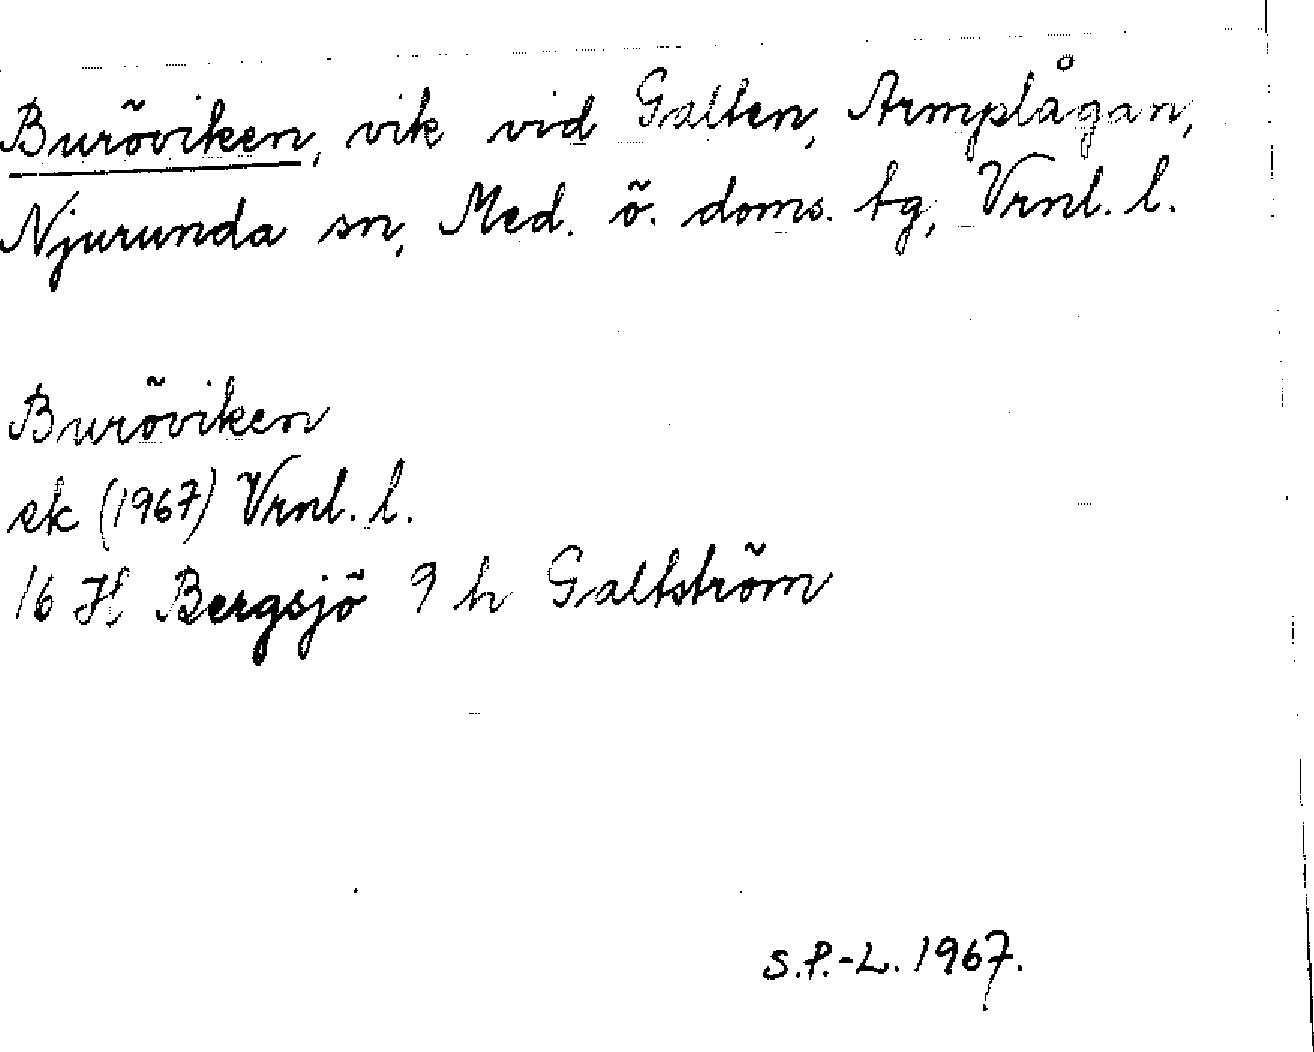 Buröviken, vik vid Galten, Armplågan,
Njurunda sn, Med. ö. doms. tg, Vrnl. l.
Buröviken
ek (1967) Vrnl. l.
16 H Bergsjö 9 h Galtström
S.P.-L. 1967.